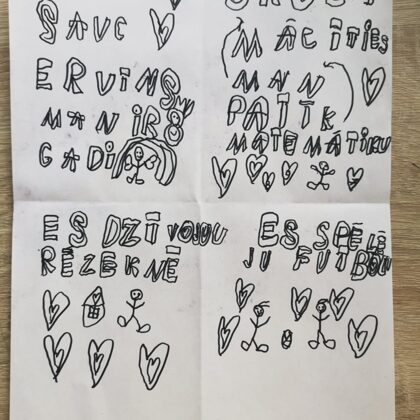 SAUC
ERVINS
MAN IR 8
GADI
MĀCĪTIES
MAN
PATĪK
MATEMĀTIKU
ES DZĪVOJU
RĒZEKNĒ
ES SPĒLĒ
JU FUTBOLU